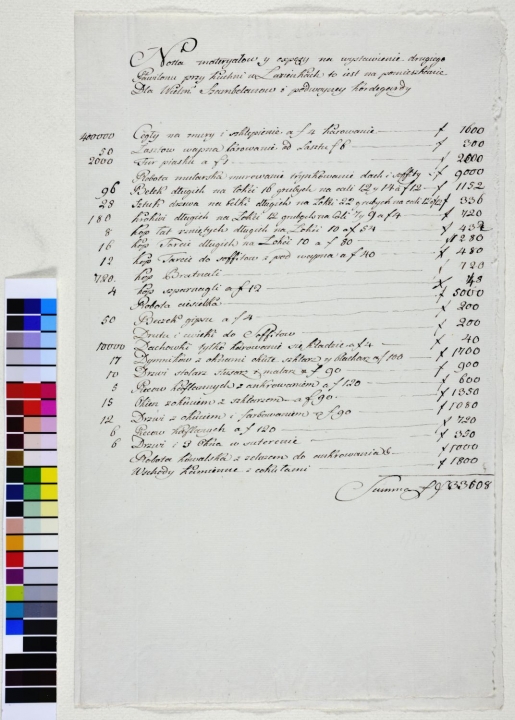 Notta materyałow y expęsy na wystawienie drugiego
Pawilonu przy kuchni w Łazienkach to iest na pomieszkanie
Dla Wielm Szambelanow i podwoyney kordegardy
400000 Cegły na mury i sklepienie a f 4 karowanie f 1600
50 Łasztow wapna karowanie od Łasztu f 6 f 300
2000 Fur piasku a f 1 f 2000
Robota mularska murowanie tynkowanie dach i soffity f 9000
96 Belek długich na łokci 16 grubych na cali 12 y 14 a f 12 f 1152
28 Sztuk drzewa na belki długich na łokci 22 grubych na cali 12 f 336
180 krokwi długich na Łokci 12 grubych na Cali 7 y 9 a f 4 f 720
8 kop łat rzniętych długich na Łokci 10 a f 54 f 432
16 kop Tarcic długich na Łokci 10 a f 80 f 1280
12 kop Tarcic do soffitow i pod wapno a f 40 f 480
720 kop Bratnali f 720
4 kop szparnagli a f 12 f 48
Robota ciesielska f 5000
50 Beczek gipsu a f 4 f 200
Drutu i cwieki do Soffitow f 200
10000 Dachowki tylko karowanie się kładzie a f 4 f 40
17 Dymnikow z oknami okute szklarz y blacharz a f 100 f 1700
10 Drzwi stolarz slusarz y malarz a f 90 f 900
5 Piecow kaflowych z ankrowaniem a f 120 f 600
15 Okien z okuciem z szklarzem a f 90 f 1350
12 Drzwi z okuciem i farbowaniem a f 90 f 1080
6 Piecow kaflowych a f 120 f 720
6 Drzwi i 3 Okna w suterenie f 320
Robota kowalska z zelazem do ankrowania f 1000
Wschody kamienne z cokułami f 1800
Summa f 33608